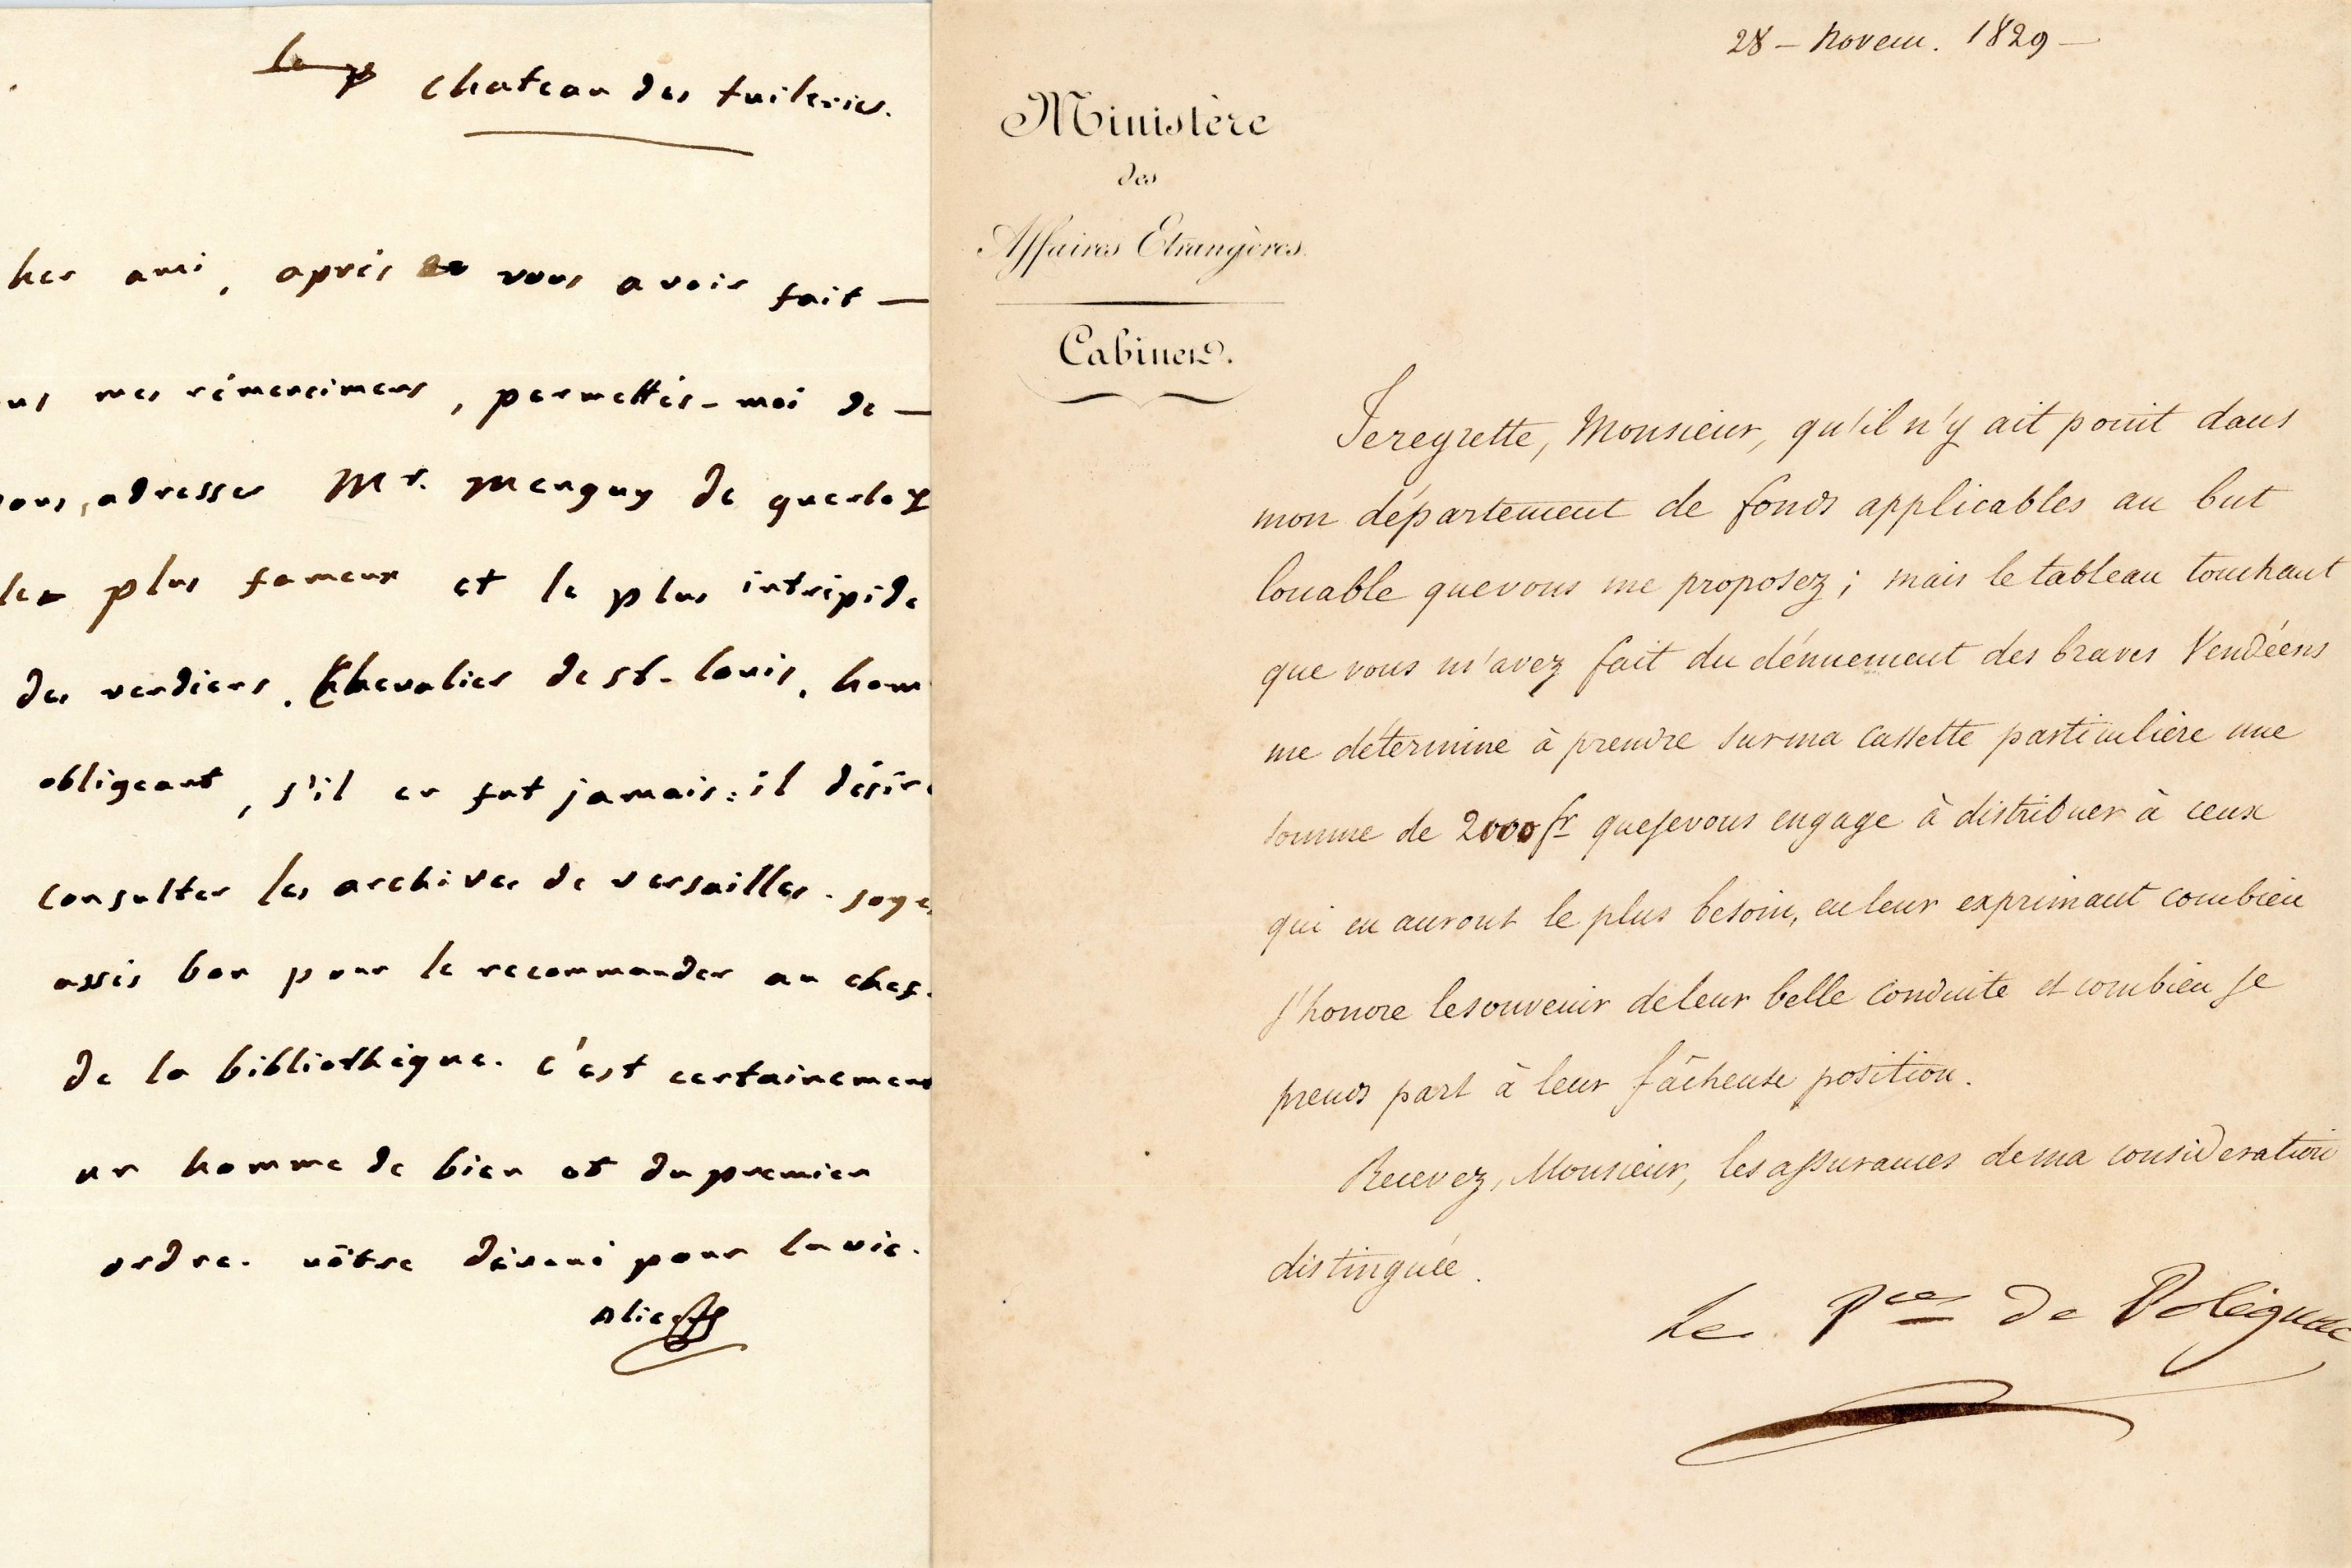 chateau des tuileries.
her ami, après vous avoir fait —
us mes rémercimens, permettés-moi de —
ous, adresser Mr. Menguy de querlo
le plus fameux et le plus intripide
des verdiers. Chevalier de st. louis, hom
obligeant, s'il en fut jamais: il désire
consulter les archives de versailles. soye
assés bon pour le recommander au chef.
de la bibliothèque. c'est certainement
un homme de bien et du premier
ordre. vôtre dévoué pour la vie.
28 — Novem. 1829 —
Ministère
des
Affaires Etrangères.
Cabinet.
Je regrette, Monsieur, qu'il n'y ait point dans
mon département de fonds applicables au but
louable que vous me proposez; mais le tableau touchant
que vous m'avez fait du dénuement des braves Vendéens
me détermine à prendre sur ma cassette particulière une
somme de 2000 fr que je vous engage à distribuer à ceux
qui en auront le plus besoin, en leur exprimant combien
j'honore le souvenir de leur belle conduite et combien je
prends part à leur fâcheuse position.
Recevez, Monsieur, les assurances de ma consideration
distinguée.
Le Pce de Polignac